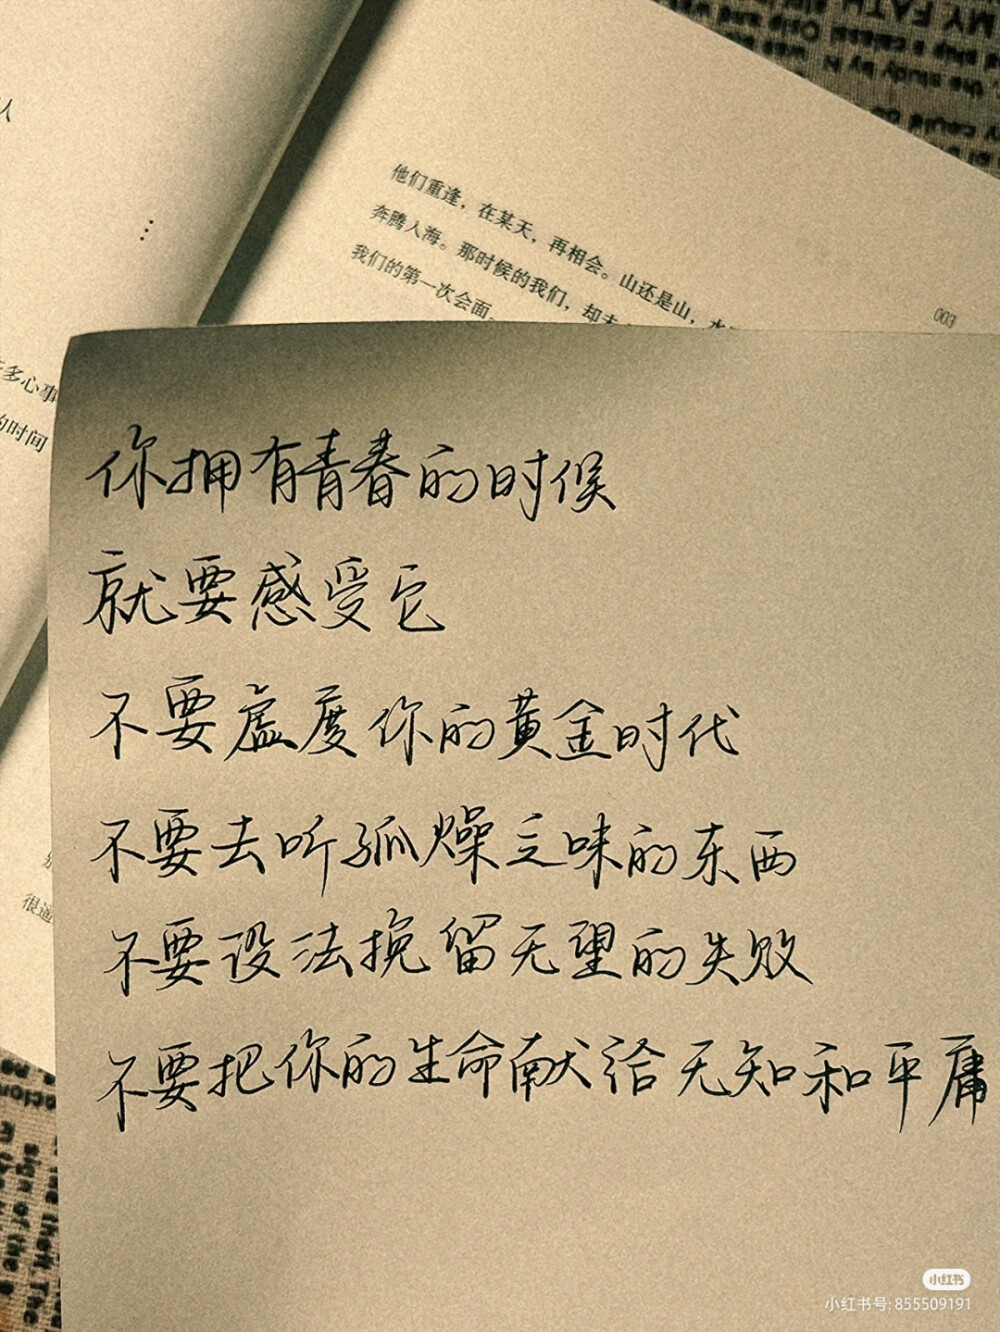 人
…
多心事
的时间
他们重逢，在某天，再相会。山还是山，水
奔腾人海。那时候的我们，却未
我们的第一次会面。
003
你拥有青春的时候
就要感受它
不要虚度你的黄金时代
不要去听孤燥乏味的东西
不要设法挽留无望的失败
不要把你的生命献给无知和平庸
很遥
MY FATH
小红书
小红书号: 855509191